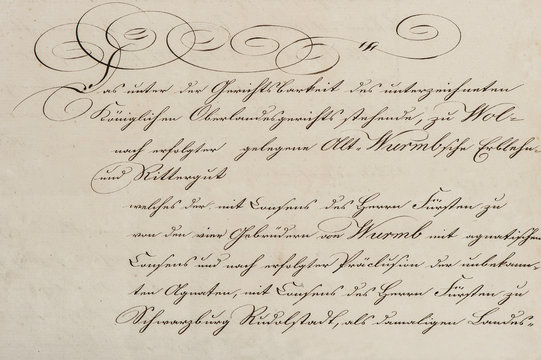 Das unter der Gerichtsbarkeit des unterzeichneten
Königlichen Oberlandesgerichts stehende, zu Wol-
nach erfolgter gelegene Alt-Wurmb'sche Erblehn-
und Rittergut
welches der mit Consens des Herrn Fürsten zu
von den vier Gebrüdern von Wurmb mit agnatischen
Consens und nach erfolgter Präclusion der unbekann-
ten Agnaten, mit Consens des Herrn Fürsten zu
Schwarzburg Rudolstadt, als damaligen Landes-